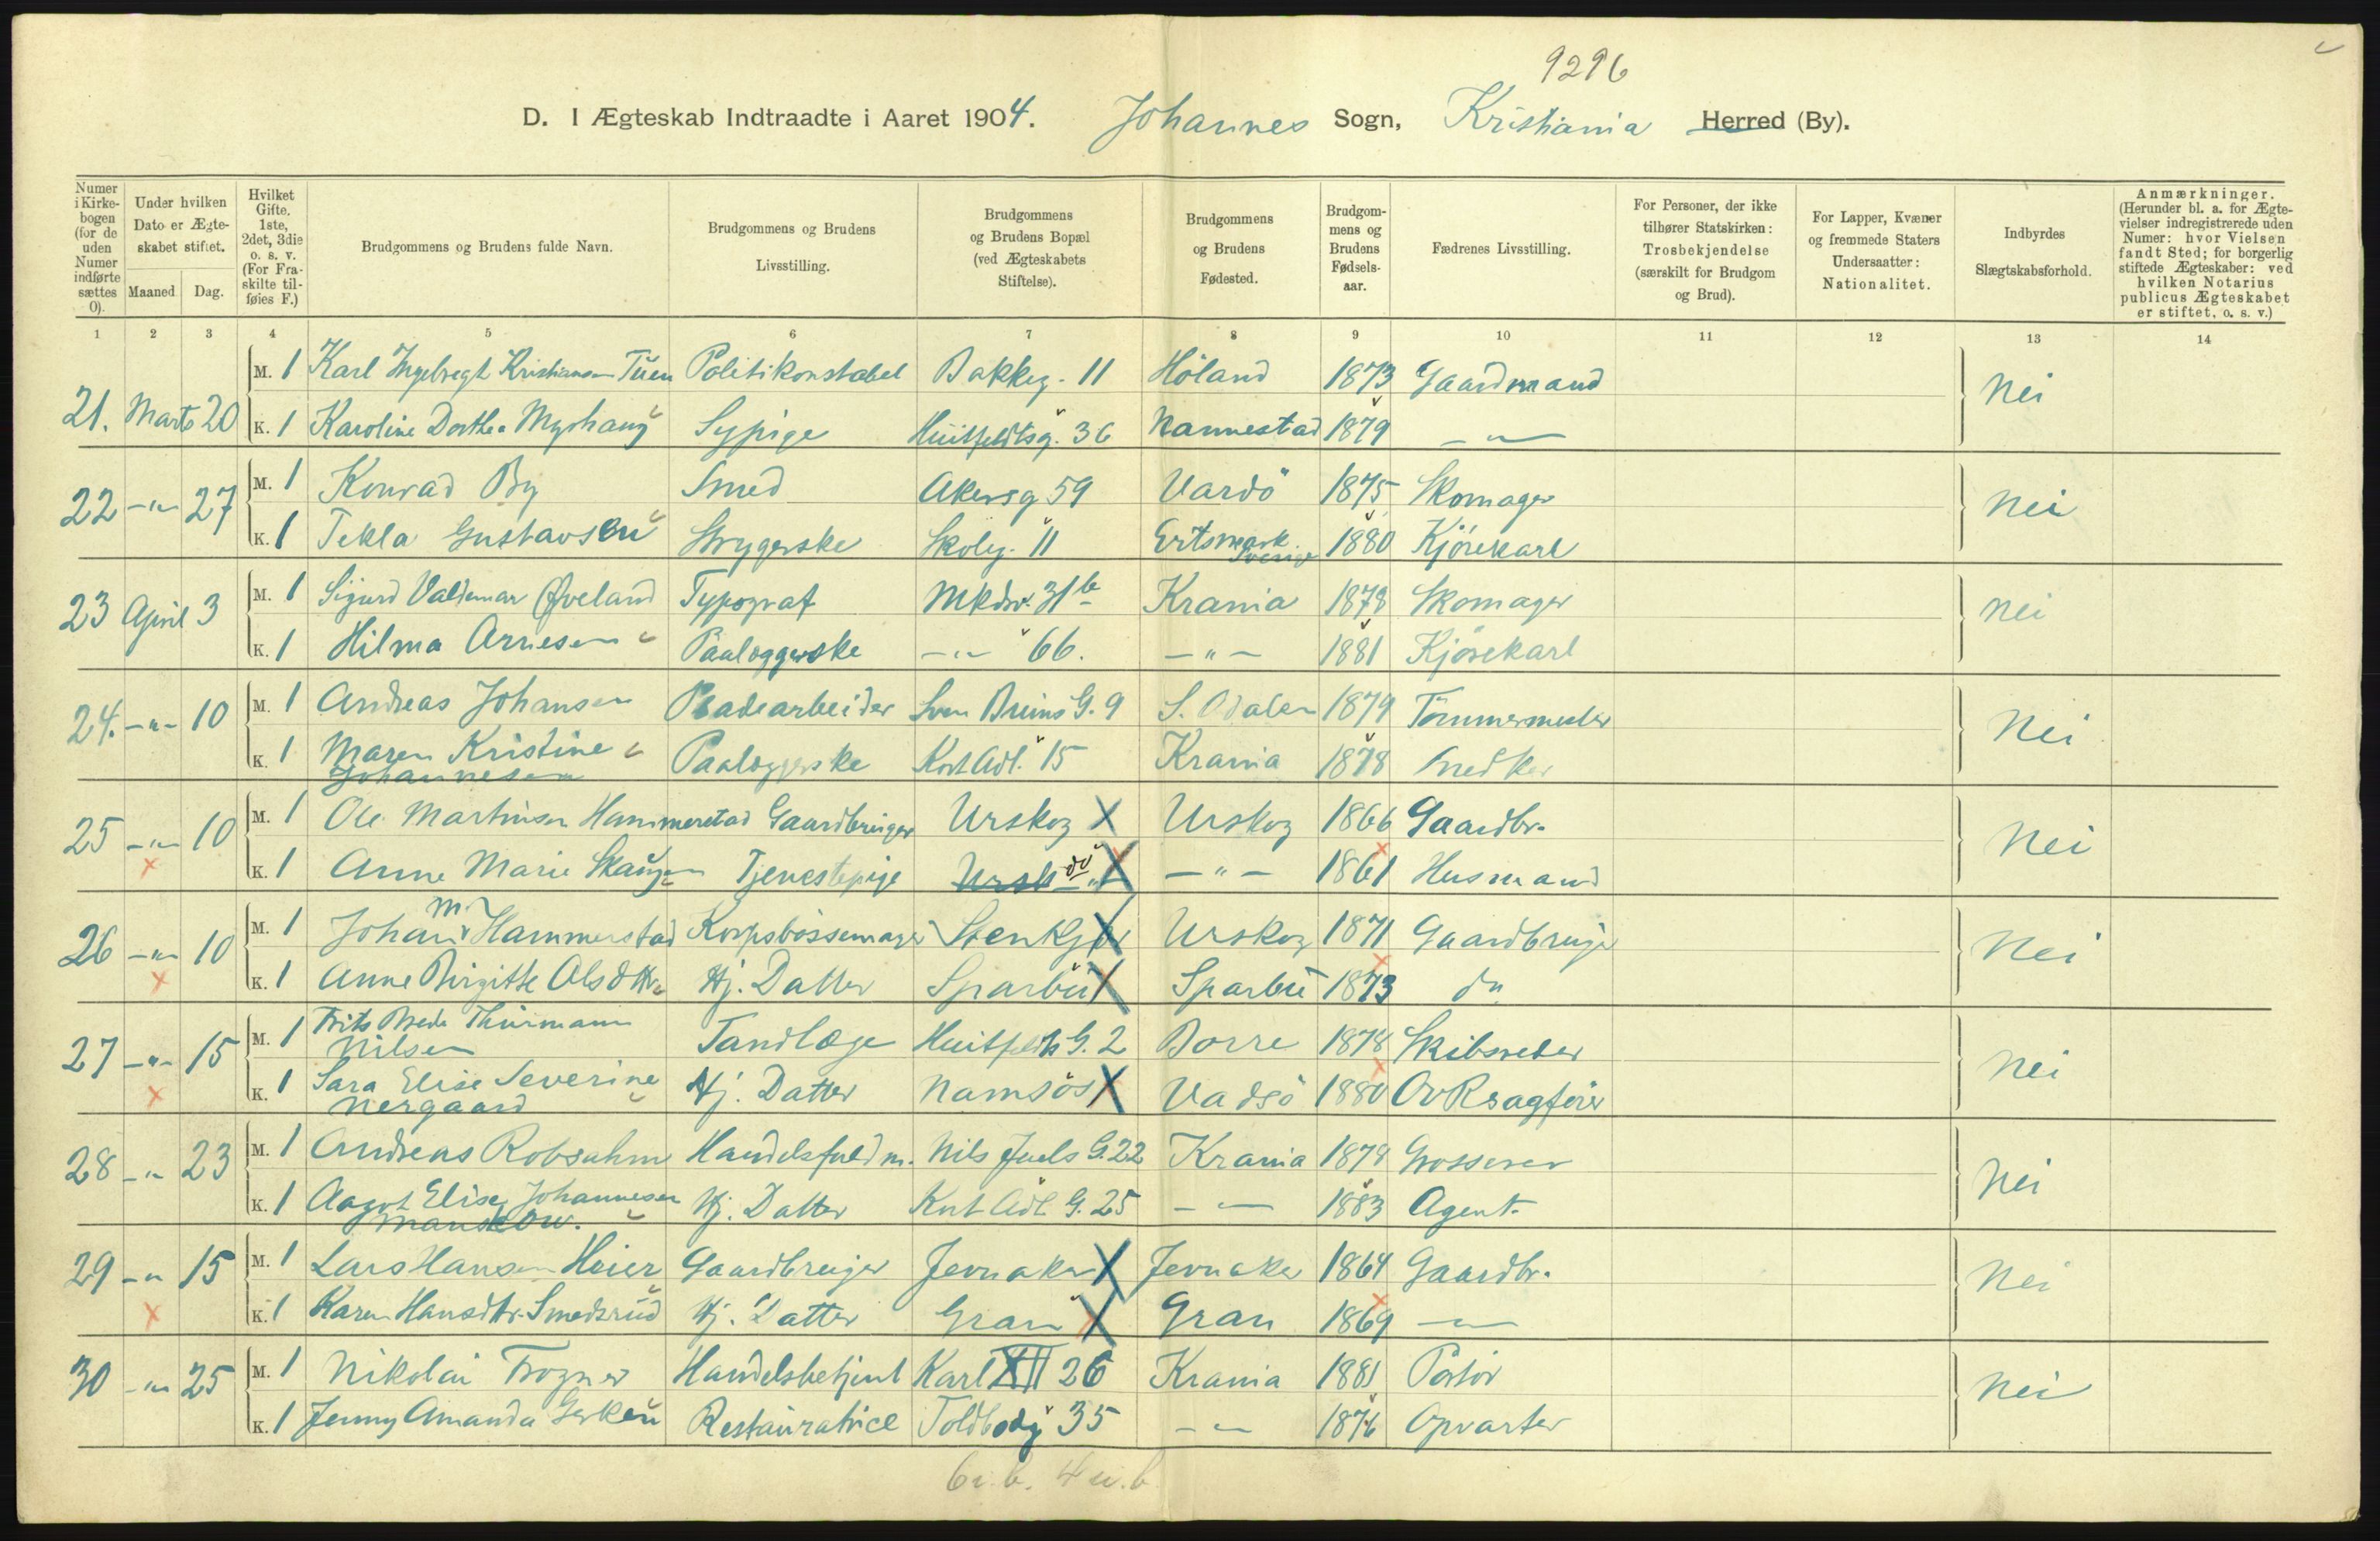 9296
D. I Ægteskab Indtraadte i Aaret 1904. Johannes Sogn, Kristiania Herred (By).
Numer i Kirkebogen (for de uden Numer indførte sættes 0).
Under hvilken Dato er Ægteskabet stiftet.
Maaned Dag.
Hvilket Gifte, 1ste, 2det, 3die o. s. v. (For Fraskilte tilføies F.)
Brudgommens og Brudens fulde Navn.
Brudgommens og Brudens Livsstilling.
Brudgommens og Brudens Bopæl (ved Ægteskabets Stiftelse).
Brudgommens og Brudens Fødested.
Brudgommens og Brudens Fødselsaar.
Fædrenes Livsstilling.
For Personer, der ikke tilhører Statskirken: Trosbekjendelse (særskilt for Brudgom og Brud).
For Lapper, Kvæner og fremmede Staters Undersaatter: Nationalitet.
Indbyrdes Slægtskabsforhold.
Anmærkninger. (Herunder bl. a. for Ægtevielser indregistrerede uden Numer: hvor Vielsen fandt Sted; for borgerlig stiftede Ægteskaber: ved hvilken Notarius publicus Ægteskabet er stiftet, o. s. v.)
1 2 3 4 5 6 7 8 9 10 11 12 13 14
21. Marts 20 M. 1 Karl Ingebregt Kristiansen Tuen Politikonstabel Bakkeg. 11 Høland 1873 Gaardmand Nei
K. 1 Karoline Dorthea Myrhaug Sypige Huitfeldtsg. 36 Nannestad 1879 — " —
22 — " — 27 M. 1 Konrad By Smed Akersg 59 Vardö 1875 Skomager Nei
K. 1 Tekla Gustavsen Strygerske Skoleg. 11 Ertsmark Sverige 1880 Kjörekarl
23 April 3 M. 1 Sigurd Valdemar Øveland Typograf Mkdv. 31 b Krania 1878 Skomager Nei
K. 1 Hilma Arnesen Paalæggerske — " — 66. — " — 1881 Kjörekarl
24. — " — 10 M. 1 Andreas Johansen Pladearbeider Sven Bruns G. 9 S. Odalen 1879 Tömmermester Nei
K. 1 Maren Kristine Johannesen Paalæggerske Kort Adl. 15 Krania 1878 Snedker
25 — " — 10 M. 1 Ole Martinsen Hammerstad Gaardbruger Urskog X Urskog 1866 Gaardbr. Nei
K. 1 Anne Marie Skaug Tjenestepige Ursk do X — " — 1861 Husmand
26 — " — 10 M. 1 Johan M. Hammerstad Korpsbössemager Stenkjær X Urskog 1871 Gaardbruger Nei
K. 1 Anne Birgitte Olsdtr. Hj. Datter Sparbu X Sparbu 1873 do
27 — " — 15 M. 1 Frits Brede Thurmann Nilsen Tandlæge Huitfeldts G. 2 Borre 1878 Skibsreder Nei
K. 1 Sara Elise Severine Nergaard Hj. Datter Namsös X Vadsö 1880 OvRsagförer
28 — " 23 M. 1 Andreas Robsahm Handelsfuldm. Nils Juels G. 22 Krania 1878 Grosserer Nei
K. 1 Aagot Elise Johannesen Manskow. Hj. Datter Kort Adl. G. 25 — " — 1883 Agent.
29 — " 15 M. 1 Lars Hansen Heier Gaardbruger Jevnaker X Jevnaker 1864 Gaardbr. Nei
K. 1 Karen Hansdtr. Smedsrud Hj. Datter Gran X Gran 1869 — " —
30 — " — 25 M. 1 Nikolai Trogner Handelsbetjent Karl XII 26 Krania 1881 Portör Nei
K. 1 Jenny Amanda Gerken Restauratrice Toldbodg 35 — " — 1876 Opvarter
6 i. b. 4 u. b